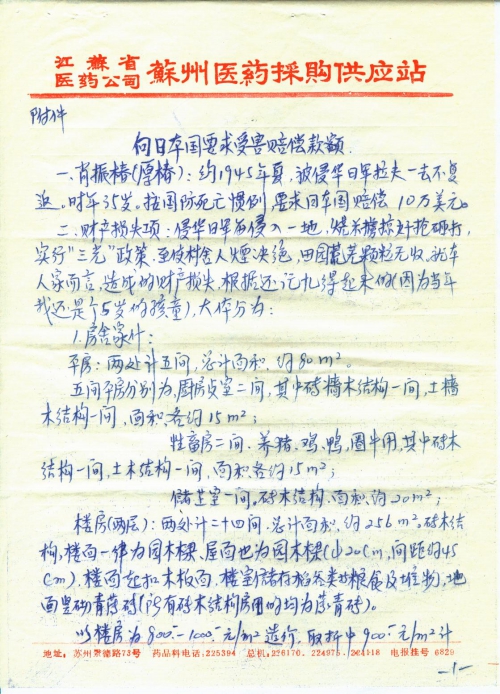 江蘇省
医药公司 蘇州医药採購供应站
附件
向日本国要求受害赔偿款额.
一、肖振椿(厚椿): 约1945年夏, 被侵华日军拉夫一去不复
返. 时年35岁. 按国际死亡惯例, 要求日本国赔偿 10万美元。
二. 财产损失项: 侵华日军每侵入一地, 烧杀掳掠奸抢砸打,
实行“三光”政策. 至使村舍人烟决绝, 田园荒芜颗粒无收. 就本
人家而言, 造成的财产损失, 根据还记忆得起来的(因为当年
我还是个5岁的孩童), 大体分为:
1. 房舍家什:
平房: 两处计五间, 总计面积, 约80m²。
五间平房分别为, 厨房 室二间, 其中砖墙木结构一间, 土墙
木结构一间, 面积, 各约15m²;
牲畜房二间. 养猪、鸡、鸭, 圈牛用, 其中砖木
结构一间, 土木结构一间, 面积, 各约15m²;
储 室一间, 砖木结构. 面积, 约20m²;
楼房(两层): 两处计二十四间. 总计面积, 约256m². 砖木结
构, 楼面一律为园木樑. 屋面也为园木樑(φ20cm, 间距约45
cm). 楼面 木板面. 楼室储存稻谷类的粮食及堆物, 地
面是砌青蔴砖(所有砖木结构房用的均为蔴青砖)。
以楼房为800.—1000.—元/m²造价. 取折中900.—元/m²计
地址: 苏州景德路73号 药品科电话: 225394 总机: 226170. 224975. 224118 电报挂号 6829
—1—